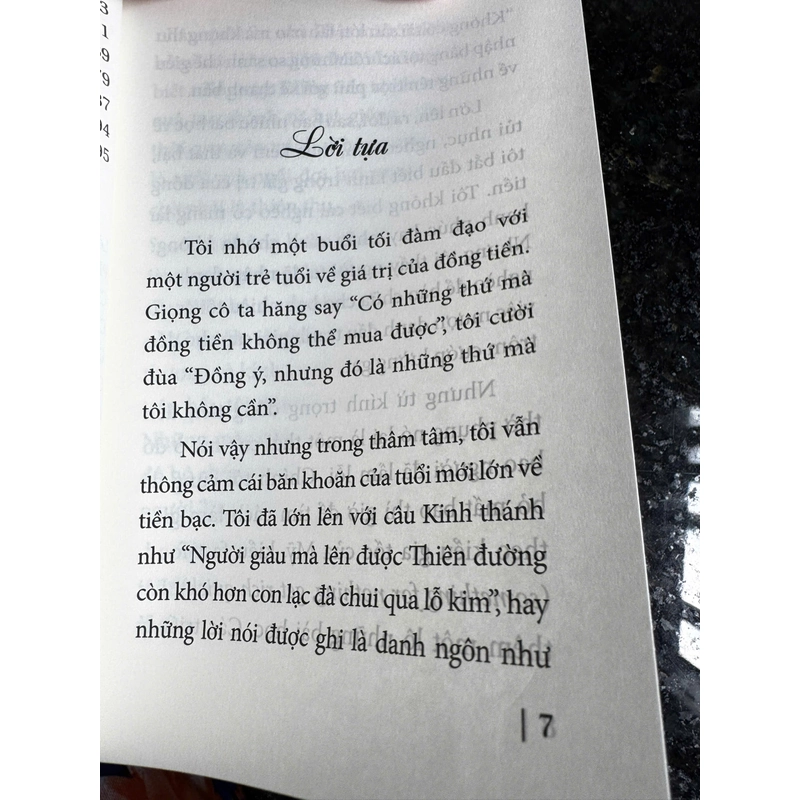 3
1
59
79
37
94
95
Lời tựa
Tôi nhớ một buổi tối đàm đạo với
một người trẻ tuổi về giá trị của đồng tiền.
Giọng cô ta hăng say “Có những thứ mà
đồng tiền không thể mua được”, tôi cười
đùa “Đồng ý, nhưng đó là những thứ mà
tôi không cần”.
Nói vậy nhưng trong thâm tâm, tôi vẫn
thông cảm cái băn khoăn của tuổi mới lớn về
tiền bạc. Tôi đã lớn lên với câu Kinh thánh
như “Người giàu mà lên được Thiên đường
còn khó hơn con lạc đà chui qua lỗ kim”, hay
những lời nói được ghi là danh ngôn như
| 7